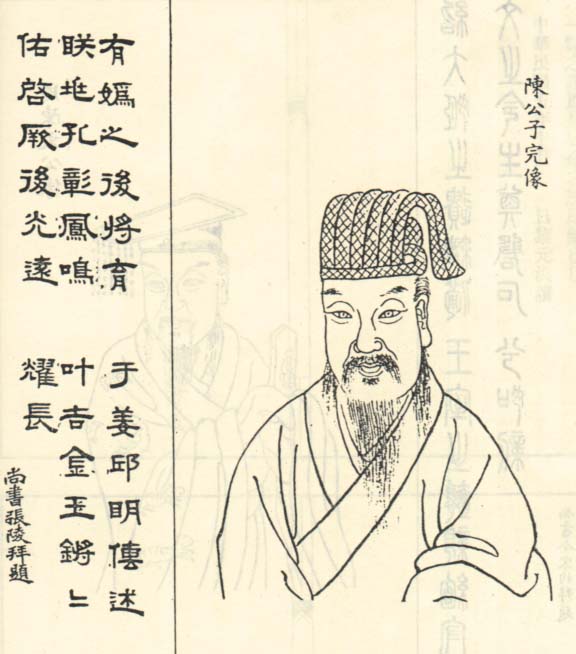 陳公子完像
有嬀之後將育于姜邱明傳述
眹兆孔彰鳳鳴叶吉金玉鏘〻
佑啓厥後光遠耀長
尚書張陵拜題